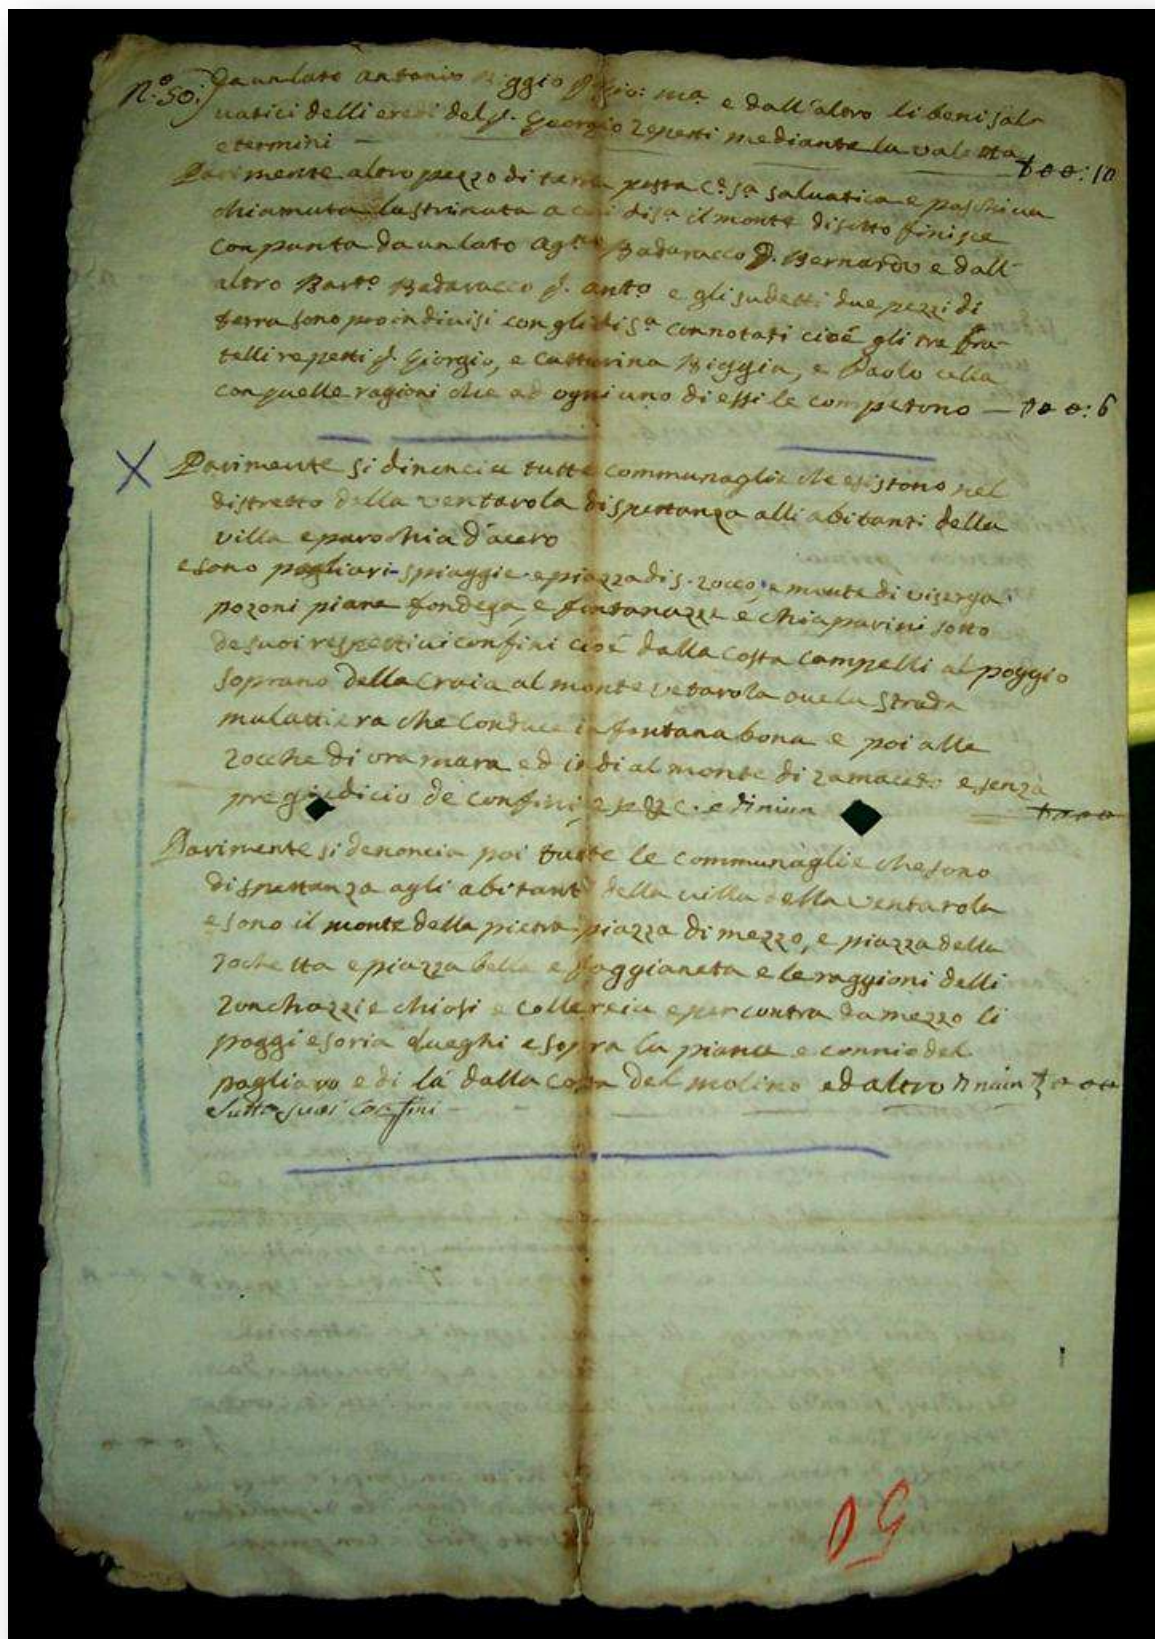 N.º 50:) Da un lato Antonio Biggio q. Gio: Ma. e dall'altro li beni sal-
uatici delli eredi del q. Georgio Repetti mediante la valetta
e termini — ƚ o o: 10
Parimente altro pezzo di terra posta c.a s.a saluatica e paschiua
chiamata la strinata a cui di s.a il monte di sotto finisce
con punta da un lato Ag.no Badaracco q. Bernardo e dall'
altro Bart.o Badaracco q. Ant.o e gli sudetti due pezzi di
terra sono proindivisi con gli di s.a connotati cioè gli tre fra-
telli repetti q. Giorgio, e Catterina Biggia, e Paolo cella
con quelle ragioni che ad ogni uno di essi le competono — ƚ o o: 6
X Parimente si dinoncia tutte communaglie che esistono nel
distretto della ventarola di spettanza alli abitanti della
villa e parochia d'acero
e sono pagliari spiaggie e piazza di s. rocco e monte di viserga
pozoni piane fondega, e fontanazze e chiaparini sotto
de suoi respettiui confini cioè dalla costa campelli al poggio
soprano della craia al monte vetarola oue la strada
mulattiera che conduce in fontana bona e poi alle
rocche di ora mara ed indi al monte di ramaceto e senza
pregiudicio de confini e niun ƚ o o o
Parimente si denoncia poi tutte le communaglie che sono
di spettanza agli abitanti della villa della ventarola
e sono il monte della pietra piazza di mezzo, e piazza della
rochetta e piazza bella e faggianeta e le raggioni delli
ronchazzi e chiosi e collereia e per contra da mezzo li
poggi e soria lueghi e sopra la piana e connio del
pagliaro e di là dalla costa del molino ed altro niuin ƚ o o o
sutto suoi confini
50